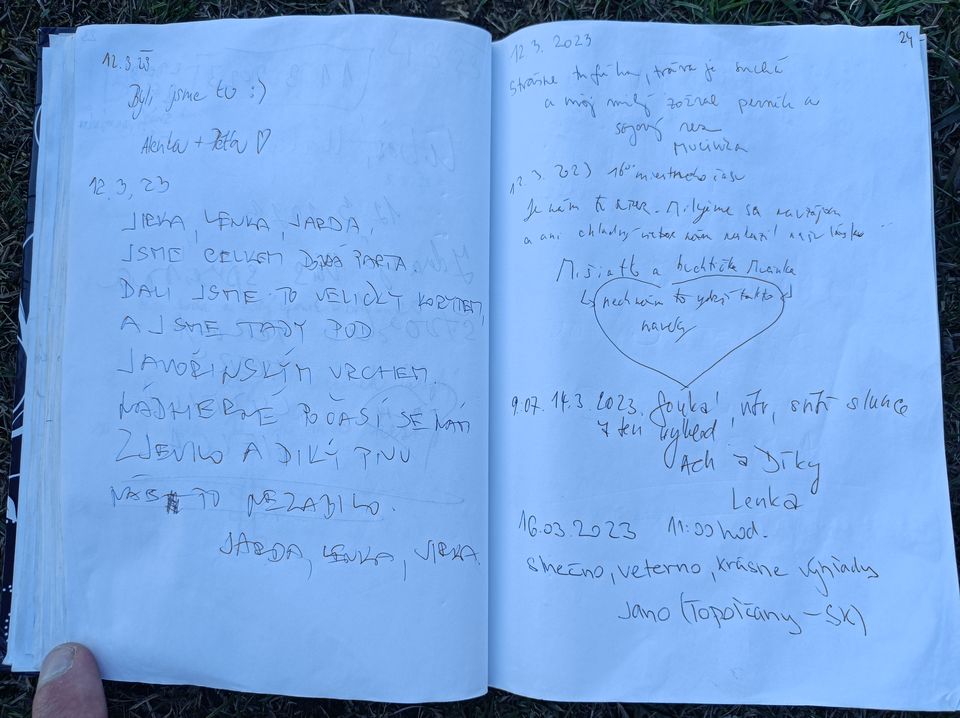 12.3.23
Byli jsme tu :)
Alenka + Péťa ♡
12.3, 23
JIRKA, LENKA, JARDA,
JSME CELKEM DRSÁ PARTA.
DALI JSME TO VELICKÝ KOPCEM,
A JSME TADY POD
JAVOŘINSKÝM VRCHEM.
NÁDHERNÉ POČASÍ SE NÁM
ZJEVILO A DIKÝ PIVU
NÁS TO NEZABILO.
JARDA, LENKA, JIRKA.
24
12. 3. 2023
strašne tráva je suchá
a môj milý zožral perník a
sojový rez
Mucinka
12.3.2023 16⁰⁰ miestneho času
Je nám tu. Milujeme sa navzájom
a ani chladný vietor nám
Mišiatko a buchtička Mucinka
nech nám to vydrží takto
navždy
9:07. 14.3. 2023. Fouká, vítr, svítí slunce
ten výhled
Ach a Díky
Lenka
16.03.2023 11:00 hod.
slnečno, veterno, krásne výhľady
Jano (Topoľčany - SK)